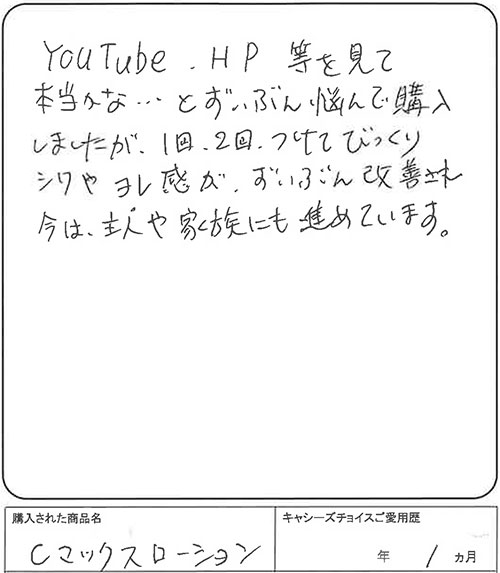 YouTube、HP 等を見て
本当かな…とずいぶん悩んで購入
しましたが、1回、2回、つけてびっくり
シワやヨレ感が、ずいぶん改善され
今は、主人や家族にも進めています。
購入された商品名
キャシーズチョイスご愛用歴
Cマックスローション
年 1 ヵ月